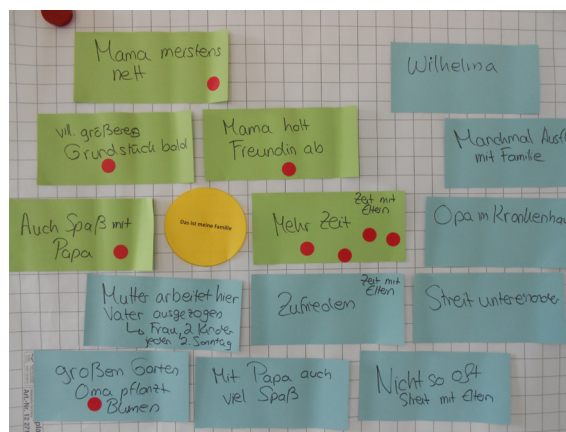 Mama meistens
nett
Wilhelma
vll. größeres
Grundstück bald
Mama holt
Freundin ab
Manchmal Ausfl
mit Familie
Auch Spaß mit
Papa
Das ist meine Familie
Zeit mit
Eltern
Mehr Zeit
Opa im Krankenhau
Mutter arbeitet hier
Vater ausgezogen
↳ Frau, 2 Kinder
jeden 2. Sonntag
Zeit mit
Eltern
Zufrieden
Streit untereinander
großen Garten
Oma pflanzt
Blumen
Mit Papa auch
viel Spaß
Nicht so oft
Streit mit Eltern